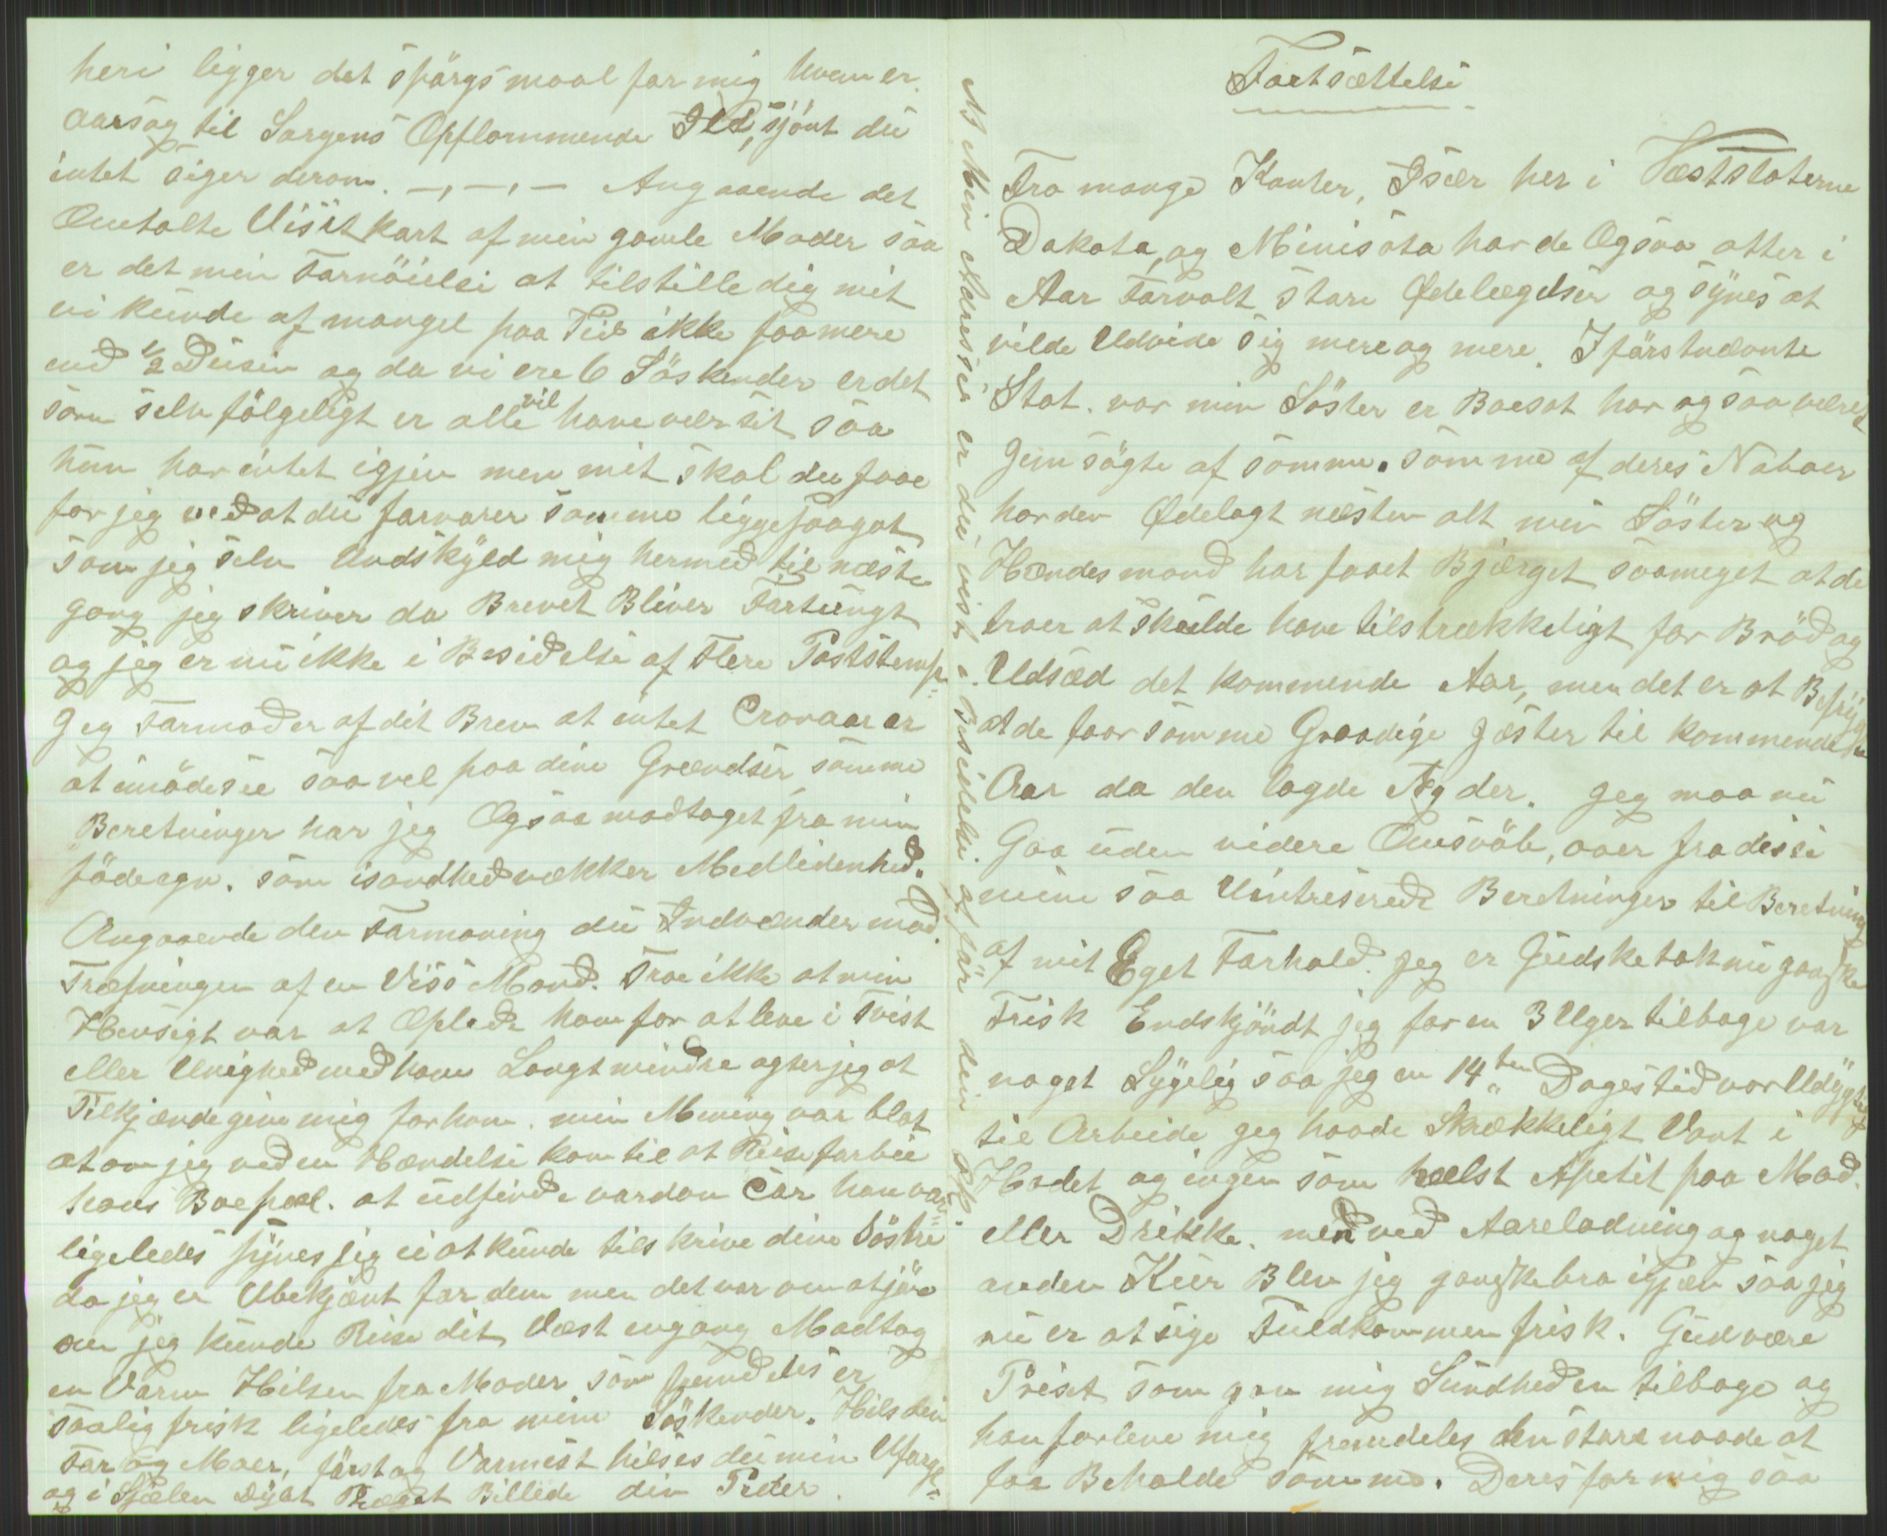 Fortsættelse
Fra mange Kanter, Især her i Væststaterne
Dakota, og Minisota har de Ogsaa atter i
Aar Forvolt store Ødelægelser og synes at
vilde Udvide sig mere og mere. I førstnævnte
Stat. vor min Søster er Boesat har ogsaa været
Jemsøgte af somme. somme af deres Naboer
har den Ødelagt næsten alt min Søster og
Hændes mand har faaet Bjærget saameget at de
troer at skulde have tilstrækkeligt for Brød og
Udsæd det kommende Aar, men det er at Befrygte
at de faar somme Graadige Jæster til kommende
Aar da den lagde Æg der. Jeg maa nu
Gaa uden videre Omsvøb, over fra disse
mine saa Uintreserede Beretninger til Beretning
af mit Eget Forhold. jeg er Gudsketak nu ganske
Frisk Endskjøndt jeg for en 3 Uger tilbage var
noget Sygelig saa jeg en 14ten Dages tid var Udygtig
til Arbeide jeg havde Skrækkeligt Vont i
Hodet og ingen som hælst Apetit paa Mad.
eller Drikke. men ved Aareladning og noget
anden Kur Blev jeg ganske bra igjæn saa jeg
nu er at sige Fuldkommen frisk. Gud være
Priset som gav mig Sundheden tilbage og
han forlene mig fremdeles den store naade at
faa Beholde somme. Deres for mig saa
heri ligger det spørgsmaal for mig hvem er
aarsag til Sorgens Opflammende Ild, sjønt du
intet siger derom. —,—,— Angaaende det
Omtalte Visitkart af min gamle Moder saa
er det min Fornøielse at tilstille dig mit
vi kunde af mangel paa Tid ikke faa mere
end 1/2 Dusin og da vi ere 6 Søskender er det
som selvfølgeligt er alle vil have vær sit saa
hun har intet igjen men mit skal du faae
for jeg ved at du forvarer somme ligge saagot
som jeg selv Undskyld mig hermed til næste
gang jeg skriver da Brevet Bliver Fortungt
og jeg er nu ikke i Besidelse af Flere Poststemp
Jeg Formoder af dit Brev at intet Cronaar er
at imødese saavel paa dine Grændser somme
Beretninger har jeg Ogsaa modtaget fra min
fødeegn. som isandhed vækker Medlidenhed.
Angaaende den Formaning du Indvænder mod
Træfningen af en Viss Mand. Troe ikke at min
Hensigt var at Oplede ham for at leve i Tvist
eller Unighed med ham Langt mindre agter jeg at
Tilkjændegive mig for ham. min Mening var blot
at om jeg ved en Hændelse kom til at Reise forbie
hans Boepæl. at udfinde vordan Car han var
ligeledes synes jeg ei at kunde tilskrive dine Søstre
da jeg er Ubekjænt for dem men det var om at jøre
om jeg kunde Reise dit Væst engang Modtag
en Varm Hilsen fra Moder som fremdeles er
saalig frisk ligeledes fra mine Søskender. Hils din
Far og Moer, først og Varmest hilses du min
og i Sjælen Dybt Præget Billede din Peder.
NB Min Adresse er du vist i Besidelse af før din